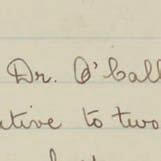 Dr. O'Call
ative to two